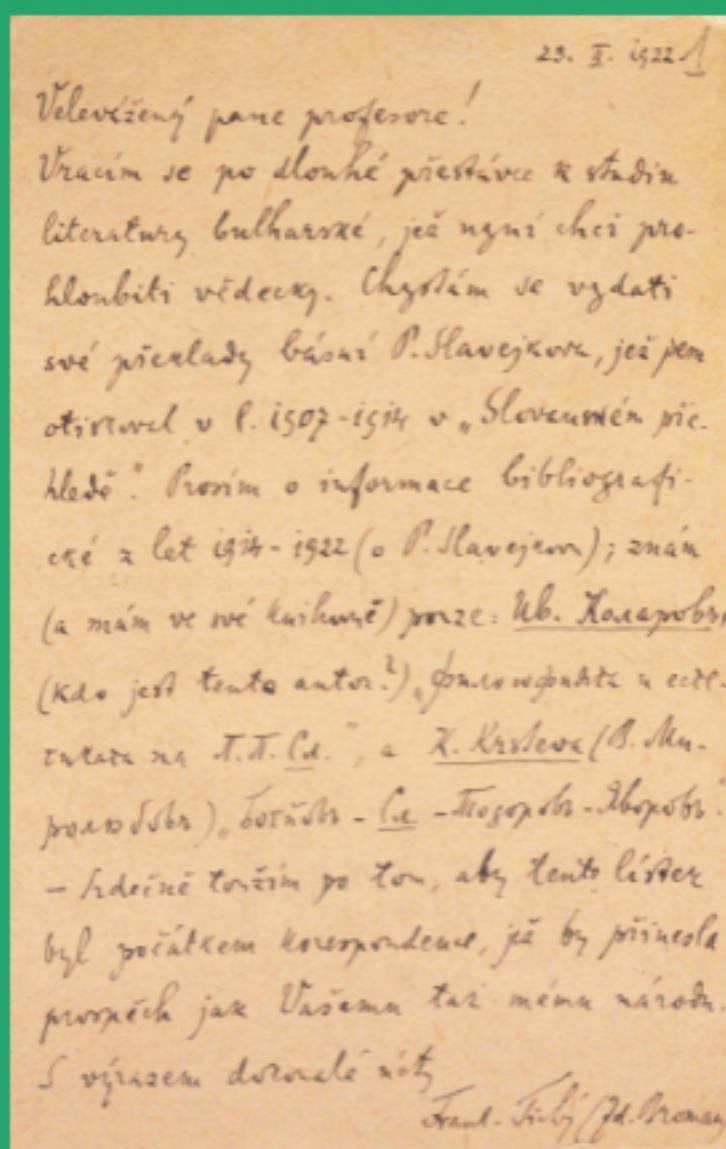 23. II. 1922
Velevážený pane profesore!
Vracím se po dlouhé přestávce k studiu
literatury bulharské, jež nyní chci pro-
hloubiti vědecky. Chystám se vydati
své překlady básní P. Slavejkova, jež jsem
otiskoval v l. 1907-1914 v „Slovanském pře-
hledě". Prosím o informace bibliografi-
cké z let 1914-1922 (o P. Slavejkovi); znám
(a mám ve své knihovně) pouze: Ив. Коларовъ,
(kdo jest tento autor?) „Философията и есте-
тиката на П. П. Сл.", a K. Krsteva (В. Ми-
ролюбовъ) „Ботйовъ - Сл - Тодоровъ - Яворовъ".
- Srdečně toužím po tom, aby tento lístek
byl počátkem korespondence, jež by přinesla
prospěch jak Vašemu tak mému národu.
S výrazem dokonalé úcty
Frant. Tichý (Zd. Broman